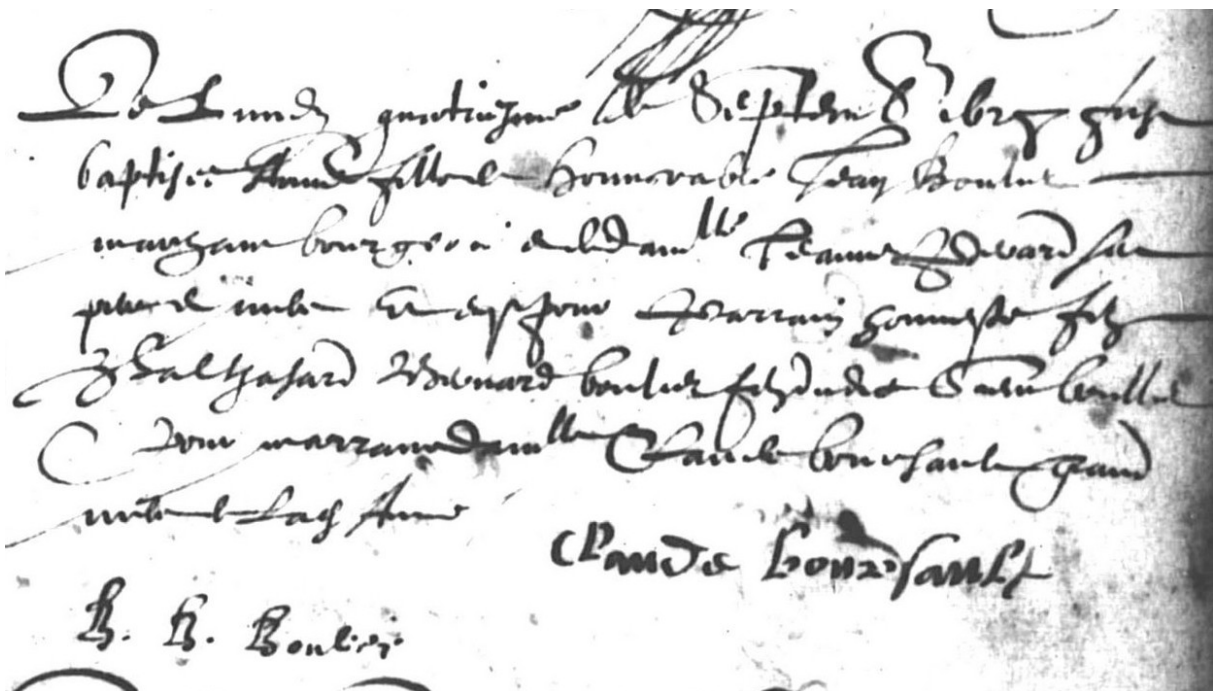 Le Lundy quatriesme de Septembre 1617 fust
baptisee Anne fille de Honnorable Jean Boulier
marchant bourgeois et de dam^lle Jeanne Edouard ses
pere et mere Et eust pour Parrain honneste filz
Balthasard Bernard boulier filz dudict Sieur boullier
pour marraine dam^lle Claude boursault grand
mere de lad Anne
Claude boursault
B. B. Boulier